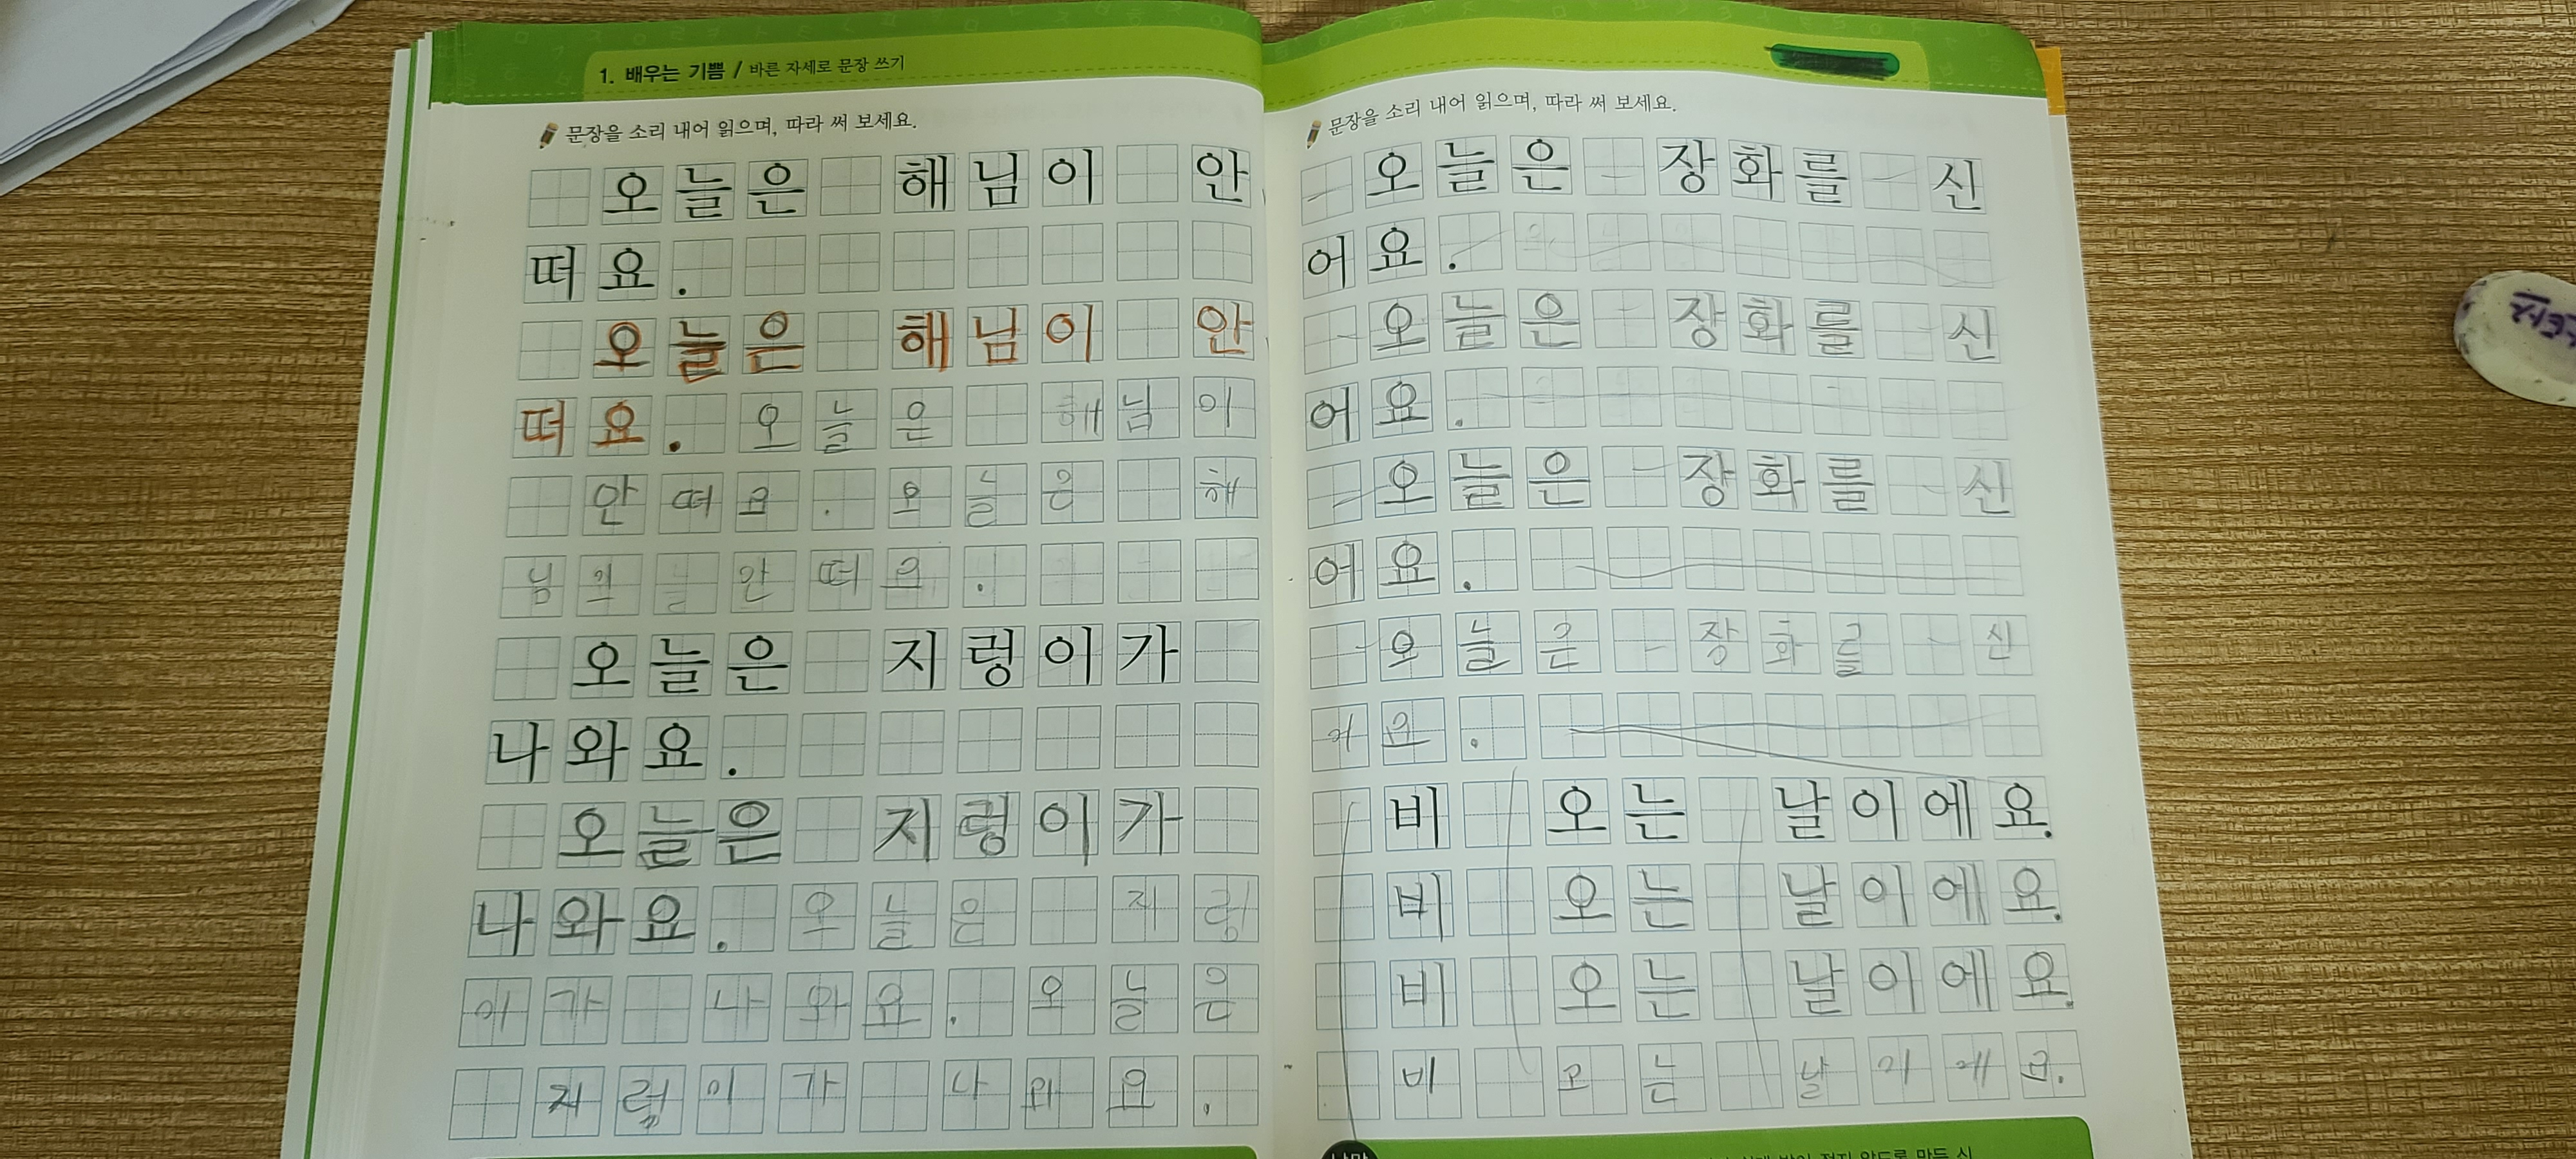 1. 배우는 기쁨 / 바른 자세로 문장 쓰기
문장을 소리 내어 읽으며, 따라 써 보세요.
오늘은 해님이 안
떠요.
오늘은 해님이 안
떠요. 오늘은 해님이
안떠요. 오늘은 해
님이 안떠요.
오늘은 지렁이가
나와요.
오늘은 지렁이가
나와요. 오늘은 지렁
이가 나와요. 오늘은
지렁이가 나와요.
문장을 소리 내어 읽으며, 따라 써 보세요.
오늘은 장화를 신
어요.
오늘은 장화를 신
어요.
오늘은 장화를 신
어요.
오늘은 장화를 신
어요.
비 오는 날이에요.
비 오는 날이에요.
비 오는 날이에요.
비 오는 날이에요.